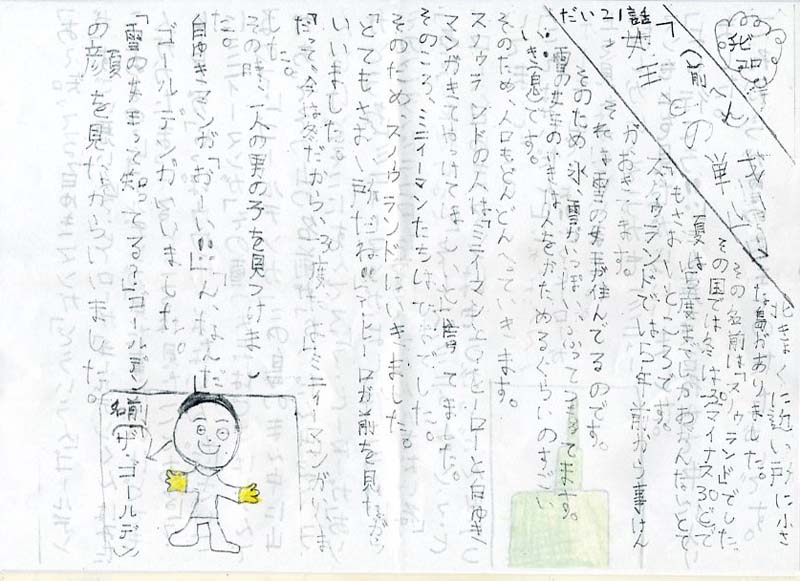 だい21話
女王との戦い
(前へん)
北きょくに近い所に小さ
な島がありました。
その名前は「スノウランド」でした
その国では冬はマイナス30どで
夏は 度までしかあがらないとても
さむいところです。
スノウランドでは5年前から事けん
がおきてます。
それは雪の女王が住んでるのです。
そのため氷、雪がいっぱいふってきてます。
雪の女王のいきは人をかためるぐらいのすごい
いき(息)です。
そのため、人口もどんどんへっていきます。
スノウランドの人は「ミティーマンとZ・ヒーローと白ゆき
マンがきてやっつけてほしい」と言ってました。
そのころ、ミティーマンたちは でした。
そのため、スノウランドにいきました。
「とてもさむい所だね。」Z・ヒーローが前を見ながら
いいました。
「だって、今は冬だから、-30度さ。」ミティーマンがいいまし
た。
その時、一人の男の子を見つけまし
た。
白ゆきマンが「おーい!!」「ん、なんだ」
ゴールデンがいいました。
「雪の女王って知ってる?」ゴールデン
の顔を見ながらいいました。
名前(ザ・ゴールデン)